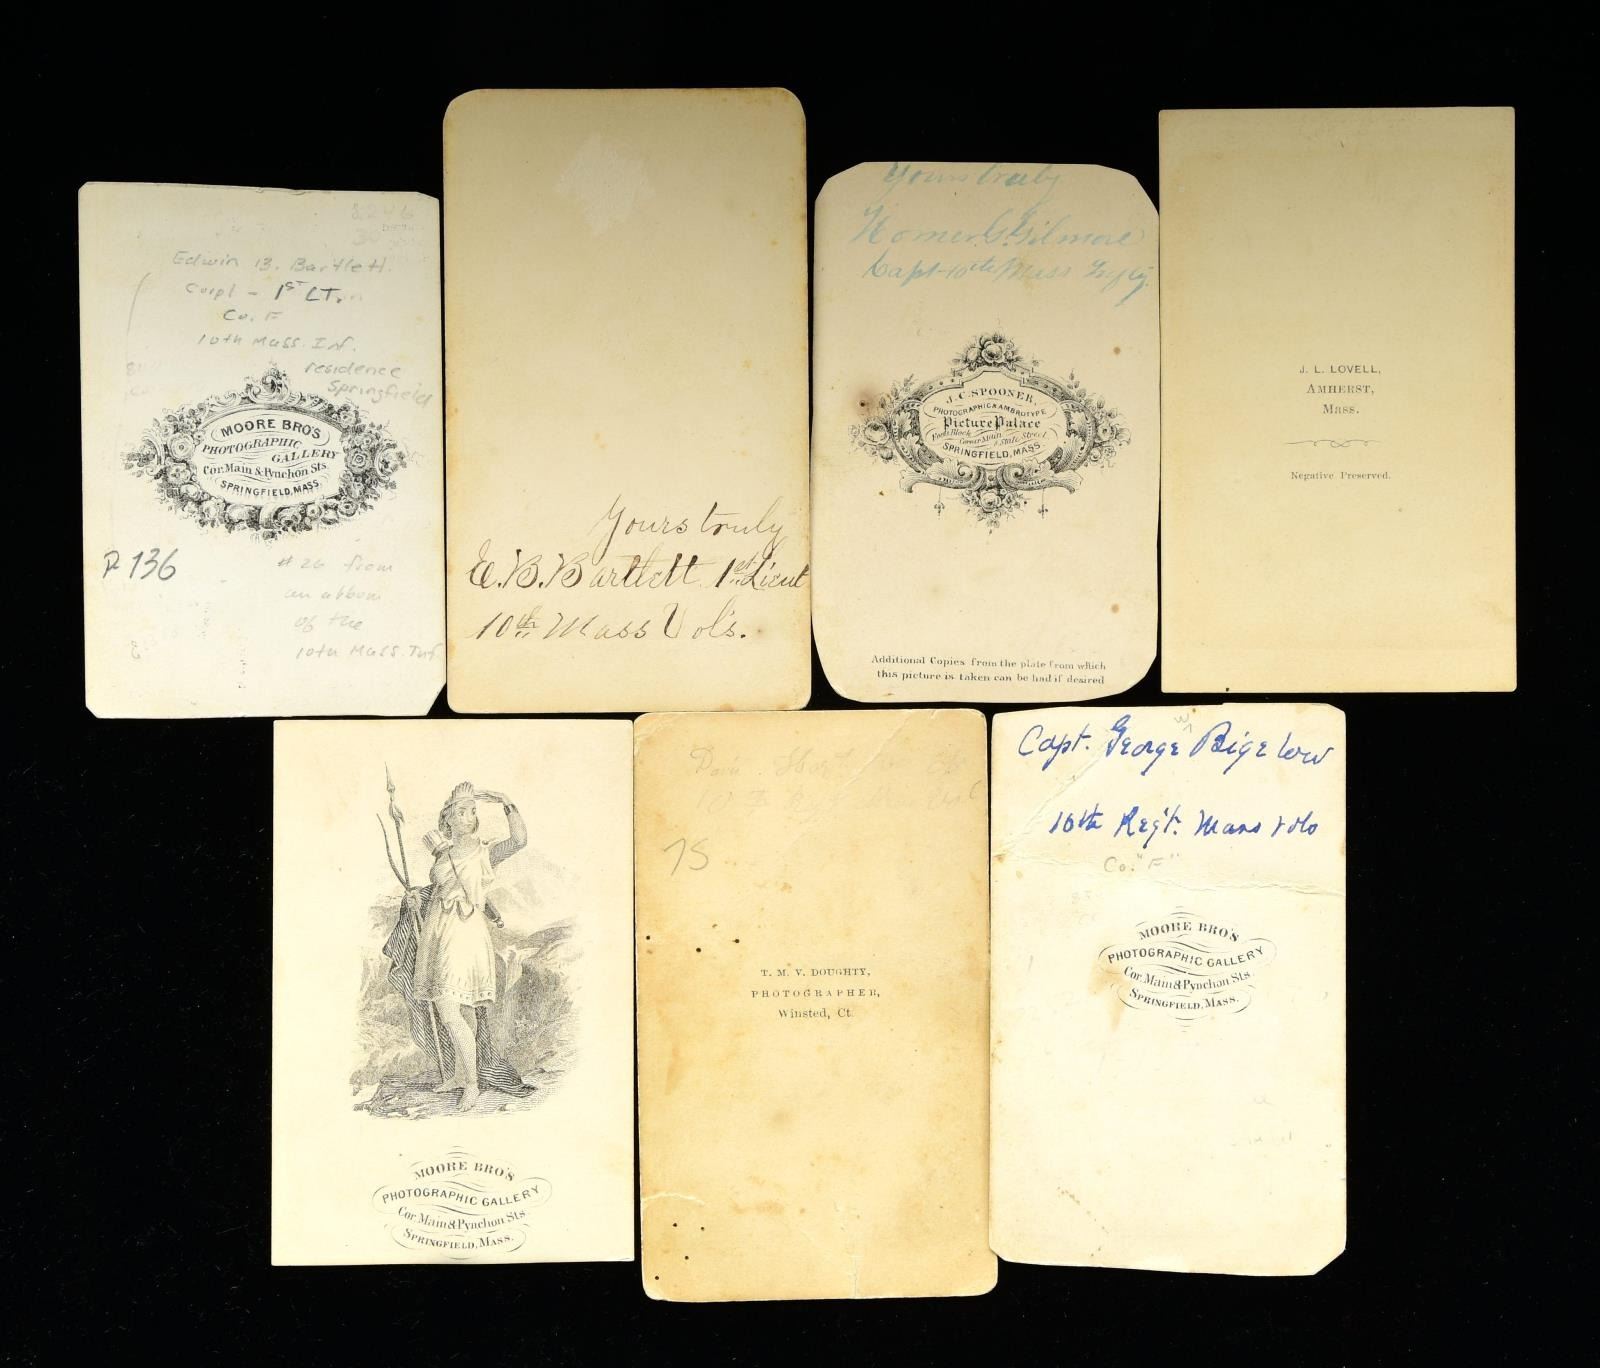 Edwin B. Bartlett.
Corpl - 1st LT.
Co. F
10th Mass. Inf.
residence
Springfield
MOORE BRO'S
PHOTOGRAPHIC
GALLERY
Cor. Main & Pynchon Sts.
SPRINGFIELD, MASS.
P 136
#26 from
an album
of the
10th Mass. Inf.
Yours truly
E. B. Bartlett 1st Lieut
10th Mass Vols.
Yours truly
Homer G. Gilmore
Capt 10th Mass
J. C. SPOONER,
PHOTOGRAPHIC & AMBROTYPE
Picture Palace
Foots Block
Corner Main
& State Street
SPRINGFIELD, MASS.
Additional Copies from the plate from which
this picture is taken can be had if desired
J. L. LOVELL,
AMHERST,
MASS.
Negative Preserved.
MOORE BRO'S
PHOTOGRAPHIC GALLERY
Cor. Main & Pynchon Sts.
SPRINGFIELD, MASS.
75
T. M. V. DOUGHTY,
PHOTOGRAPHER,
Winsted, Ct.
Capt. George W Bigelow
10th Reg't. Mass Vols
Co. "F"
MOORE BRO'S
PHOTOGRAPHIC GALLERY
Cor. Main & Pynchon Sts.
SPRINGFIELD, MASS.